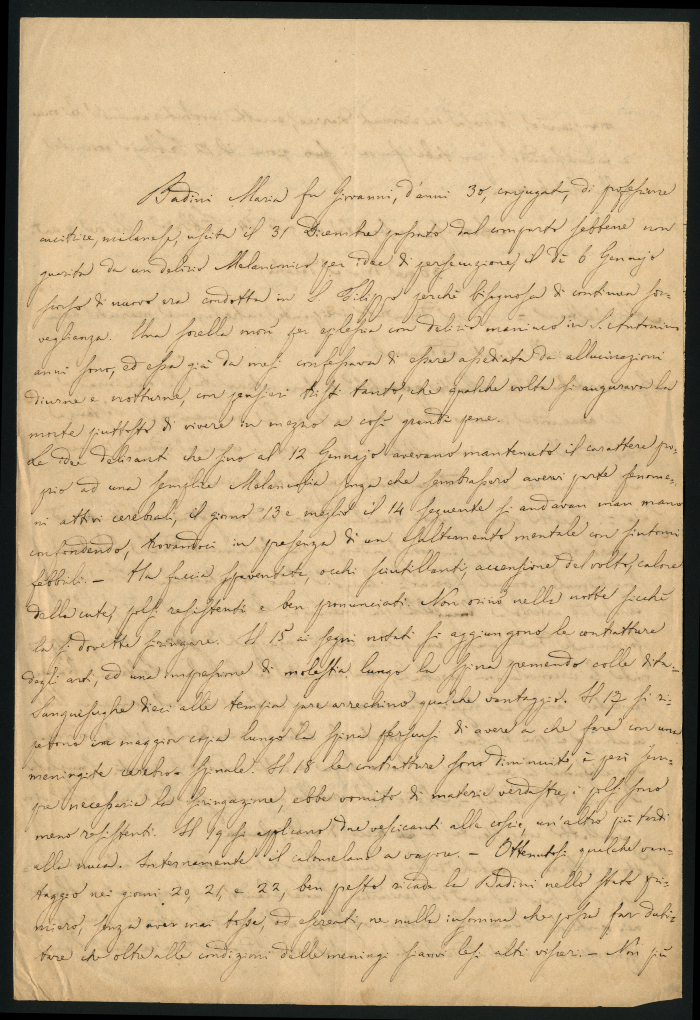 Badini Maria fu Giovanni, d'anni 30, conjugata, di professione
cucitrice, milanese, uscita il 31 Dicembre passato dal comparto sebbene non
guarita da un delirio Melanconico per idee di persecuzione, il dì 6 Gennajo
scorso di nuovo era condotta in S. Filippo perchè bisognosa di continua sor-
veglianza. Una sorella morì per eplessia con delirio maniaco in S. Antonino
anni sono, ed essa già da mesi confessava di essere assediata da allucinazioni
diurne e notturne, con pensieri tristi tanto, che qualche volta si augurava la
morte piuttosto di vivere in mezzo a così grandi pene.
Le idee deliranti che fino al 12 Gennajo avevano mantenuto il carattere pro-
prio ad una semplice Melancolia senza che sembrassero avervi parte fenome-
ni attivi cerebrali, il giorno 13 e meglio il 14 seguente si andavan man mano
confondendo, trovandoci in presenza di un esaltamento mentale con sintomi
febbrili. – Ha faccia spaventata, occhi scintillanti, accensione del volto, calore
della cute, polsi resistenti e ben pronunciati. Non orinò nella notte sicchè
la si dovette siringare. Il 15 ai segni notati si aggiungono le contratture
degli arti, ed una impressione di molestia lungo la spina premendo colle dita-
Sanguisughe dieci alle tempia pare arrechino qualche vantaggio. Il 17 si ri-
petono in maggior copia lungo la spina persuasi di avere a che fare con una
meningite cerebro-spinale. Il 18 le contratture sono diminuite, è però sem-
pre necessaria la siringazione, ebbe vomito di materie verdastre, i polsi sono
meno resistenti. Il 19 si applicano due vescicanti alle coscie, un'altro più tardi
alla nuca. Internamente il calomelano a vapore. – Ottenutosi qualche van-
taggio nei giorni 20, 21, e 22, ben presto ricade la Badini nello stato pri-
miero, senza aver mai tosse, od escreati, nè nulla insomma che possa far dubi-
tare che oltre alle condizioni delle meningi sianvi lesi altri visceri. – Non più